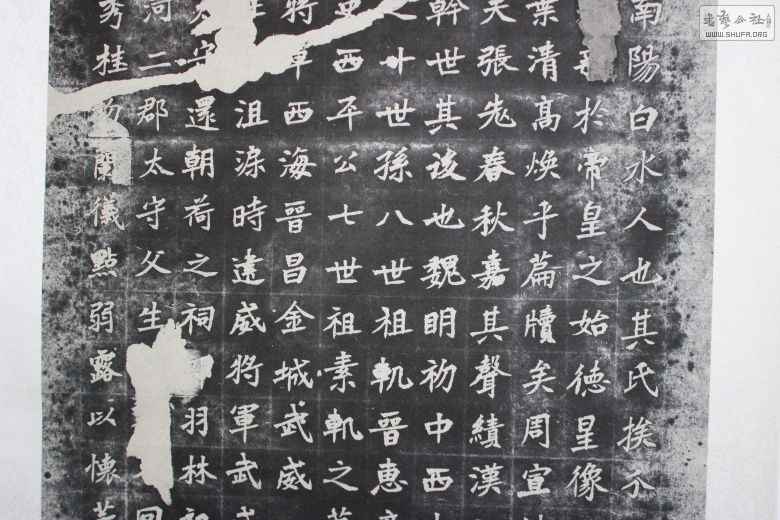 南陽白水人也其氏挨
於帝皇之始德星像
葉清高煥乎篇牘矣周宣
天張老春秋嘉其聲績漢
幹世其後也魏明初中西
十世孫八世祖軌晉惠
西平公七世祖素軌之
將軍西海晉昌金城武威
沮渠時建威將軍武
守還朝荷之祠羽林
河二郡太守父生
秀桂蘭儀點弱露以懷
書藝公社
WWW.SHUFA.ORG